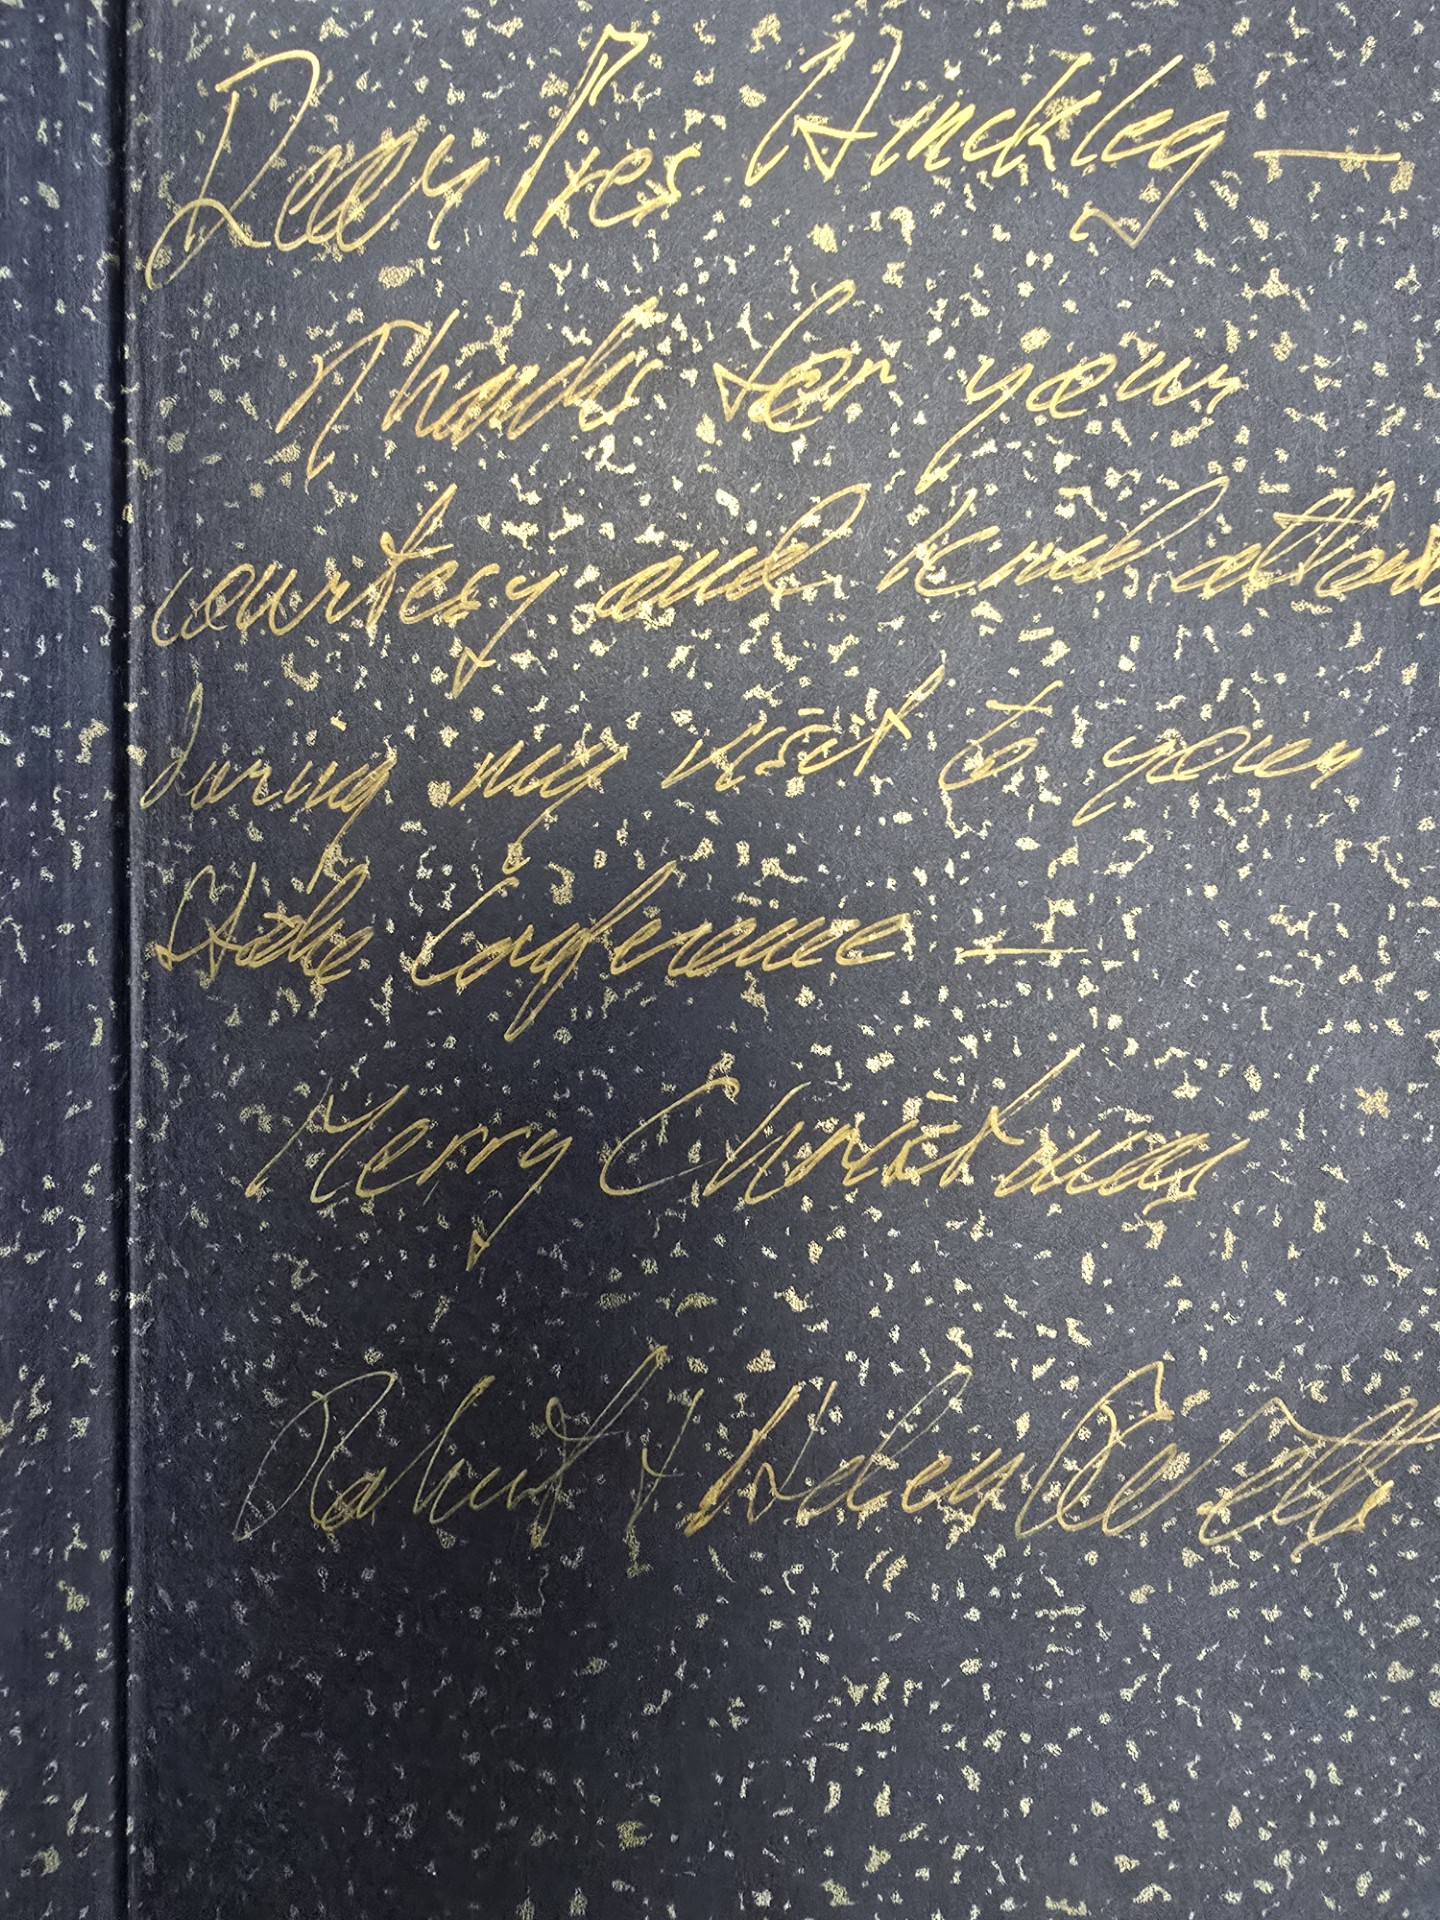 Dear Pres Hinckley —
Thanks for your
courtesy and kind
during my visit to your
Stake Conference —
Merry Christmas
Robert & Helen